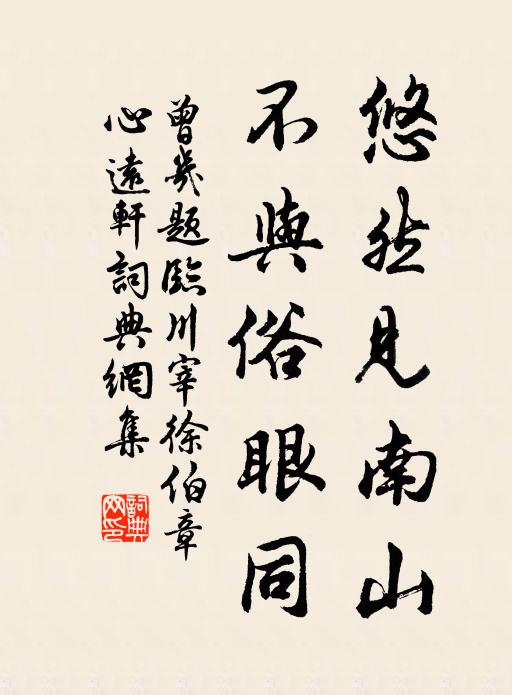 悠然見南山
不與俗眼同
曾幾題臨川宰徐伯章
心遠軒詞典網集
詞典網印